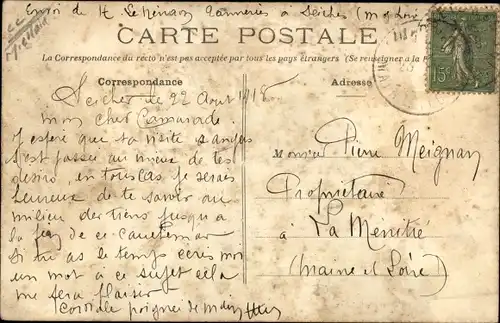 Envoi de H. Tanneries à Seiches (M et Loire)
CARTE POSTALE
La Correspondance du recto n'est pas acceptée par tous les pays étrangers (Se renseigner à la
Correspondance
Adresse
15c
Seiches le 22 Août 1918
mon cher Camarade.
J'espère que ta visite à angers
s'est passée au mieux de tes
désirs, en tous cas je serais
heureux de te savoir au
milieu des tiens jusqu'à
la fin de ce cauchemar
Si tu as le temps écris moi
un mot à ce sujet cela
me fera plaisir
Cordiale poignée de main
Monsieur Pierre Meignan
Propriétaire
à La Ménitré
(Maine et Loire)